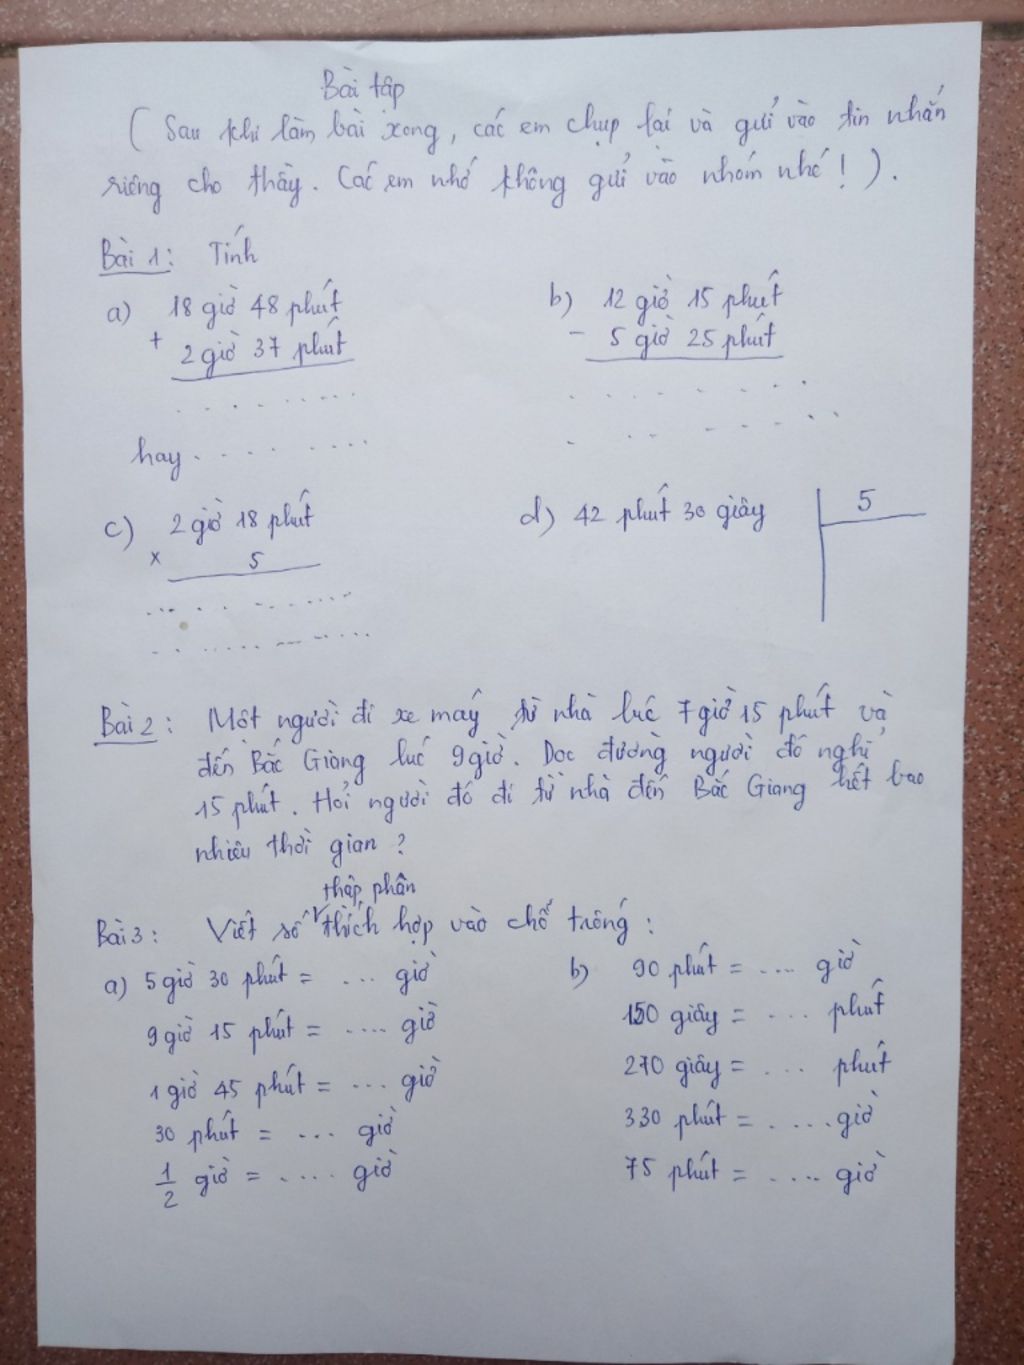 Bài tập
( Sau khi làm bài xong, các em chụp lại và gửi vào tin nhắn
riêng cho thầy. Các em nhớ không gửi vào nhóm nhé! ).
Bài 1: Tính
a) 18 giờ 48 phút
+ 2 giờ 37 phút
.........
hay .........
b) 12 giờ 15 phút
- 5 giờ 25 phút
.........
.........
c) 2 giờ 18 phút
x 5
.........
.........
d) 42 phút 30 giây 5
Bài 2: Một người đi xe máy từ nhà lúc 7 giờ 15 phút và
đến Bắc Giang lúc 9 giờ. Dọc đường người đó nghỉ
15 phút. Hỏi người đó đi từ nhà đến Bắc Giang hết bao
nhiêu thời gian?
thập phân
Bài 3: Viết số thích hợp vào chỗ trống:
a) 5 giờ 30 phút = .... giờ
9 giờ 15 phút = .... giờ
1 giờ 45 phút = .... giờ
30 phút = ... giờ
1/2 giờ = .... giờ
b) 90 phút = .... giờ
150 giây = .... phút
270 giây = .... phút
330 phút = ..... giờ
75 phút = .... giờ